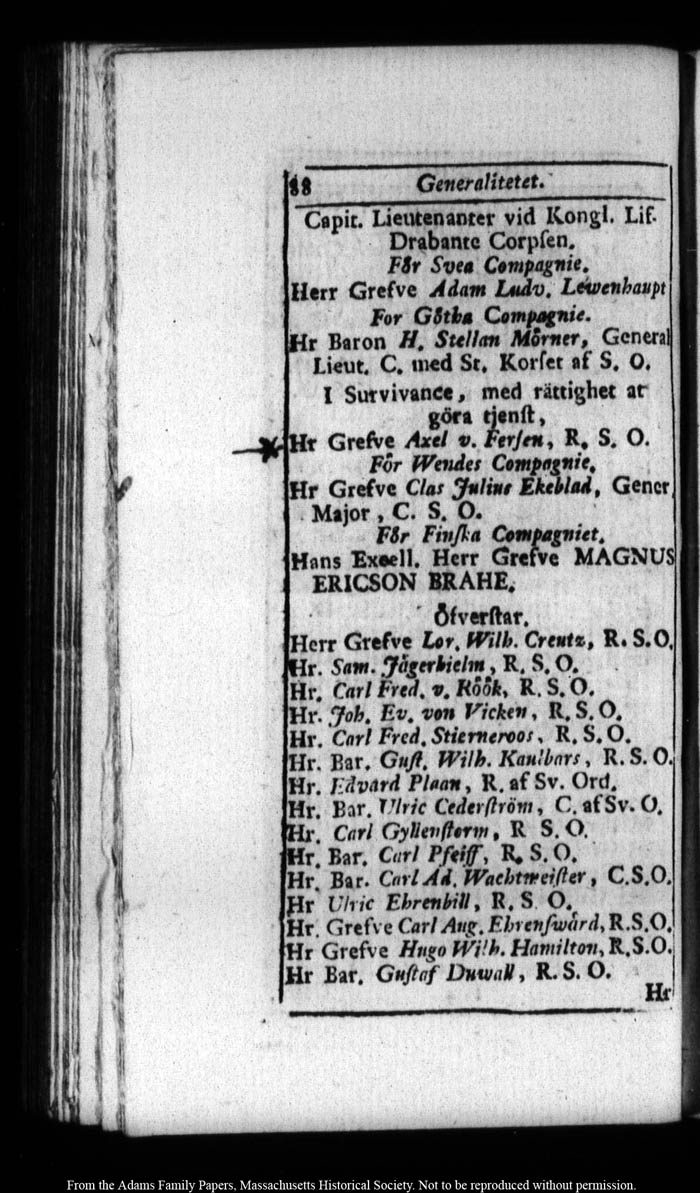 88 Generalitetet.
Capit. Lieutenanter vid Kongl. Lif-
Drabante Corpſen.
Får Svea Compagnie.
Herr Grefve Adam Ludv. Lewenhaupt
For Gåtha Compagnie.
Hr Baron H. Stellan Mårner, General
Lieut. C. med St. Korſet af S. O.
I Survivance, med rättighet at
göra tjenſt,
Hr Grefve Axel v. Ferſen, R. S. O.
Får Wendes Compagnie.
Hr Grefve Clas Julius Ekeblad, Gener
Major, C. S. O.
Får Finſka Compagniet.
Hans Excell. Herr Grefve MAGNUS
ERICSON BRAHE.
Öfverſtar.
Herr Grefve Lor. Wilh. Creutz, R. S. O.
Hr. Sam. Jågerhielm, R. S. O.
Hr. Carl Fred. v. Kåök, R. S. O.
Hr. Joh. Ev. von Vicken, R. S. O.
Hr. Carl Fred. Stierneroos, R. S. O.
Hr. Bar. Guſt. Wilh. Kaulbars, R. S. O.
Hr. Edvard Plaan, R. af Sv. Ord.
Hr. Bar. Ulric Cederſtröm, C. af Sv. O.
Hr. Carl Gyllenſtorm, R S. O.
Hr. Bar. Carl Pfeiff, R. S. O.
Hr. Bar. Carl Ad. Wachtmeiſter, C.S.O.
Hr Ulric Ehrenbill, R. S. O.
Hr. Grefve Carl Aug. Ehrenſwård, R.S.O.
Hr Grefve Hugo Wilh. Hamilton, R.S.O.
Hr Bar. Guſtaf Duwall, R. S. O.
Hr
From the Adams Family Papers, Massachusetts Historical Society. Not to be reproduced without permission.